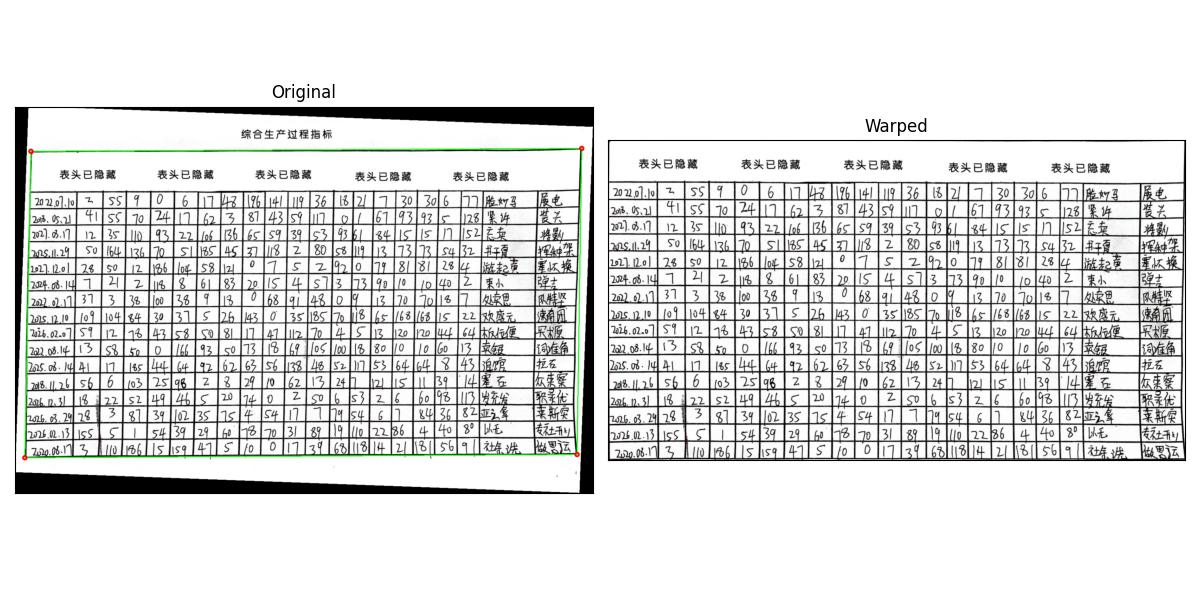 Original
综合生产过程指标
表头已隐藏 表头已隐藏 表头已隐藏 表头已隐藏 表头已隐藏
2022.07.10 2 55 9 0 6 17 48 196 141 119 36 18 21 7 30 30 6 77 脸如马 展电
2018.05.21 41 55 70 24 17 62 3 87 43 59 117 0 1 67 93 93 5 128 果许 营关
2027.08.17 12 35 110 93 22 106 136 65 59 39 53 93 61 84 15 15 17 152 忘卖
2025.11.29 50 164 136 70 51 185 45 37 118 2 80 58 119 13 73 73 54 32
2027.12.01 28 50 12 186 104 58 121 0 7 5 2 92 0 79 81 81 28 4
2024.08.14 7 21 2 118 8 61 83 20 15 4 57 3 73 90 10 10 40 2 束小 弹士
2022.02.17 37 3 38 100 38 9 13 0 68 91 48 0 9 13 70 70 18 7
2025.12.10 109 104 84 30 37 5 26 143 0 35 185 70 118 65 168 168 15 22
2026.02.07 59 12 78 43 58 50 81 17 47 112 70 4 5 13 120 120 44 64
2022.08.14 13 58 50 0 166 93 50 73 18 69 105 100 18 80 10 10 60 13
2025.08.14 41 17 185 44 64 92 62 63 56 138 48 52 117 53 64 64 8 43 追馆 拉右
2018.11.26 56 6 103 25 98 2 8 29 10 62 13 24 7 121 15 11 39 14
2026.12.31 18 22 52 49 46 5 20 74 0 2 50 6 53 2 6 60 98 113
2026.03.29 28 3 87 39 102 35 75 4 54 17 7 79 54 6 7 84 36 82
2026.02.13 155 5 1 54 39 29 60 78 70 31 89 19 110 22 86 4 40 80 以毛
2020.08.17 3 110 186 15 159 47 5 10 0 17 39 68 118 14 21 181 56 9 社余洗 做思运
Warped
表头已隐藏 表头已隐藏 表头已隐藏 表头已隐藏 表头已隐藏
2022.07.10 2 55 9 0 6 17 48 196 141 119 36 18 21 7 30 30 6 77 脸如马 展电
2018.05.21 41 55 70 24 17 62 3 87 43 59 117 0 1 67 93 93 5 128 果许 营关
2027.08.17 12 35 110 93 22 106 136 65 59 39 53 93 61 84 15 15 17 152 忘卖
2025.11.29 50 164 136 70 51 185 45 37 118 2 80 58 119 13 73 73 54 32
2027.12.01 28 50 12 186 104 58 121 0 7 5 2 92 0 79 81 81 28 4
2024.08.14 7 21 2 118 8 61 83 20 15 4 57 3 73 90 10 10 40 2 束小 弹士
2022.02.17 37 3 38 100 38 9 13 0 68 91 48 0 9 13 70 70 18 7
2025.12.10 109 104 84 30 37 5 26 143 0 35 185 70 118 65 168 168 15 22
2026.02.07 59 12 78 43 58 50 81 17 47 112 70 4 5 13 120 120 44 64
2022.08.14 13 58 50 0 166 93 50 73 18 69 105 100 18 80 10 10 60 13
2025.08.14 41 17 185 44 64 92 62 63 56 138 48 52 117 53 64 64 8 43 追馆 拉右
2018.11.26 56 6 103 25 98 2 8 29 10 62 13 24 7 121 15 11 39 14
2026.12.31 18 22 52 49 46 5 20 74 0 2 50 6 53 2 6 60 98 113
2026.03.29 28 3 87 39 102 35 75 4 54 17 7 79 54 6 7 84 36 82
2026.02.13 155 5 1 54 39 29 60 78 70 31 89 19 110 22 86 4 40 80 以毛
2020.08.17 3 110 186 15 159 47 5 10 0 17 39 68 118 14 21 181 56 9 社余洗 做思运